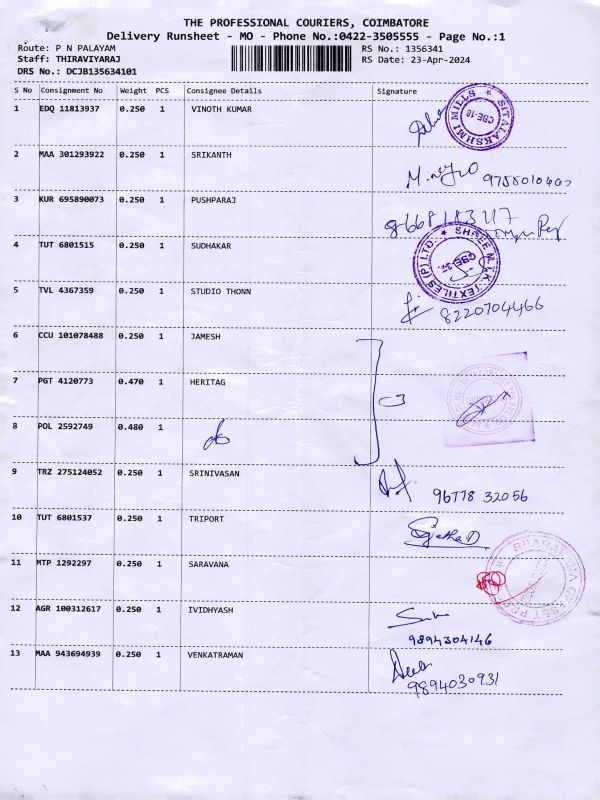 THE PROFESSIONAL COURIERS, COIMBATORE
Delivery Runsheet - MO - Phone No.:0422-3505555 - Page No.:1
Route: P N PALAYAM RS No.: 1356341
Staff: THIRAVIYARAJ RS Date: 23-Apr-2024
DRS No.: DCJB135634101
S No Consignment No Weight PCS Consignee Details Signature
1 EDQ 11813937 0.250 1 VINOTH KUMAR
SITALAKSHMI MILLS * CBE-18
2 MAA 301293922 0.250 1 SRIKANTH
3 KUR 695890073 0.250 1 PUSHPARAJ
4 TUT 6801515 0.250 1 SUDHAKAR
* SHREE M.T.K. TEXTILES (P) LTD. CBE-37
5 TVL 4367359 0.250 1 STUDIO THONN 8220704466
6 CCU 101078488 0.250 1 JAMESH
7 PGT 4120773 0.470 1 HERITAG
8 POL 2592749 0.480 1
9 TRZ 275124052 0.250 1 SRINIVASAN 96778 32056
10 TUT 6801537 0.250 1 TRIPORT
11 MTP 1292297 0.250 1 SARAVANA
12 AGR 100312617 0.250 1 IVIDHYASH
9894304146
13 MAA 943694939 0.250 1 VENKATRAMAN
9894030931